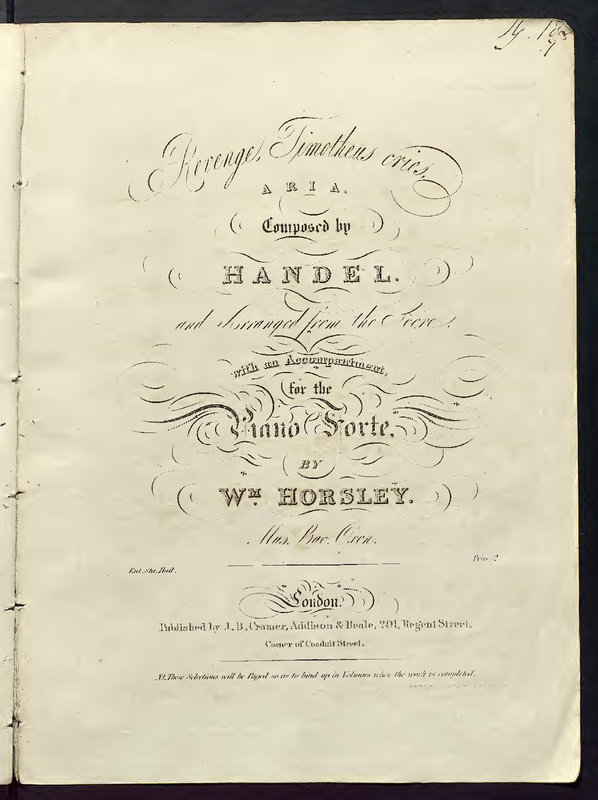 Revenge, Timotheus cries,
ARIA.
Composed by
HANDEL.
and Arranged from the Score,
with an Accompaniment,
for the
Piano Forte,
BY
WM. HORSLEY.
Mus. Bac. Oxon.
Ent. Sta. Hall.
Price 2
London.
Published by J. B. Cramer, Addison & Beale, 201, Regent Street,
Corner of Conduit Street.
NB. These Selections will be Paged so as to bind up in Volumes when the work is completed.